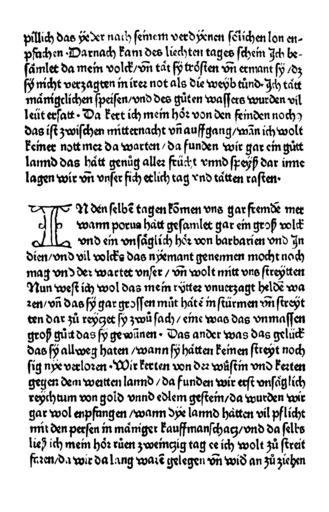 pillich das yeder nach seinem verdyenen sölichen lon en-
pfachen · Darnach kam des liechten tages schein Ich be-
samlet da mein volck/ vn̄ tät sy trösten vn̄ ermant sy /dz
sy nicht verzagten in irer not als die weyb tünd · Ich tätt
mänigtlichen speisen/ vnd des gůten wassers wurden vil
leüt ersatt · Da kert ich mein hör von den feinden noch/
das ist zwischen mitternacht vn̄ auffgang/ wān ich wolt
keiner nott mer da warten/ da funden wir gar ein gůtt
lannd das hätt genůg aller frücht vnnd speyß dar inne
lagen wir vn̄ vnser fich etlich tag vnd tätten rasten ·
IN den selbē tagen kōmen vns gar fremde mer
wann porus hätt gesamlet gar ein groß volck
vnd ein vnsäglich hör von barbarien vnd In
dien/ vnd vil volcks das nyemant genennen mocht noch
mag vnd der wartet vnser / vn̄ wolt mitt vns streytten
Nun west ich wol das mein rytter vnuerzagt helde wa
ren/ vn̄ das sy gar grossen můt hätē in stürmen vn̄ streyt
ten dar zů reyczet sy zwů sach/ eine was das vnmassen
groß gůtt das sy gewūnen · Das ander was das gelück
das sy allweg haten/ wann sy hätten keinen streyt noch
sig nye verloren · Wir kerten von der wüstin vnd kerten
gegen dem wetten lannd / da funden wir erst vnsäglich
reychtum von gold vnnd edlem gestein/ da wurden wir
gar wol enpfangen/ wann dye lannd hätten vil pflicht
mit den persen in māniger kauffmanschacz/ vnd da selbs
ließ ich mein hör růen zweinczig tag ee ich wolt zů streit
faren/ da wir da lang warē gelegen vn̄ wid an zů ziehen